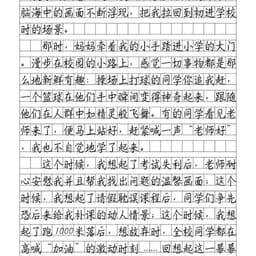 脑海中的画面不断浮现，把我拉回到初进学校
时的场景。
那时，妈妈牵着我的小手踏进小学的大门
。漫步在校园的小路上，感觉一切事物都是那
么地新鲜有趣：操场上打球的同学你追我赶，
一个篮球在他们手中瞬间变得神奇起来，跟随
他们在人群中如精灵般飞舞。有的同学看见老
师来了，便马上站好，赶紧喊一声“老师好”
，我也不自觉地学了起来。
这个时候，我想起了考试失利后，老师耐
心安慰我并且帮我找出问题的温馨画面；这个
时候，我想起了请假耽误课程后，同学们争先
恐后来给我补课的动人情景；这个时候，我想
起了跑1000米落后，想放弃时，全校同学都在
高喊“加油”的激动时刻……回想起这一幕幕